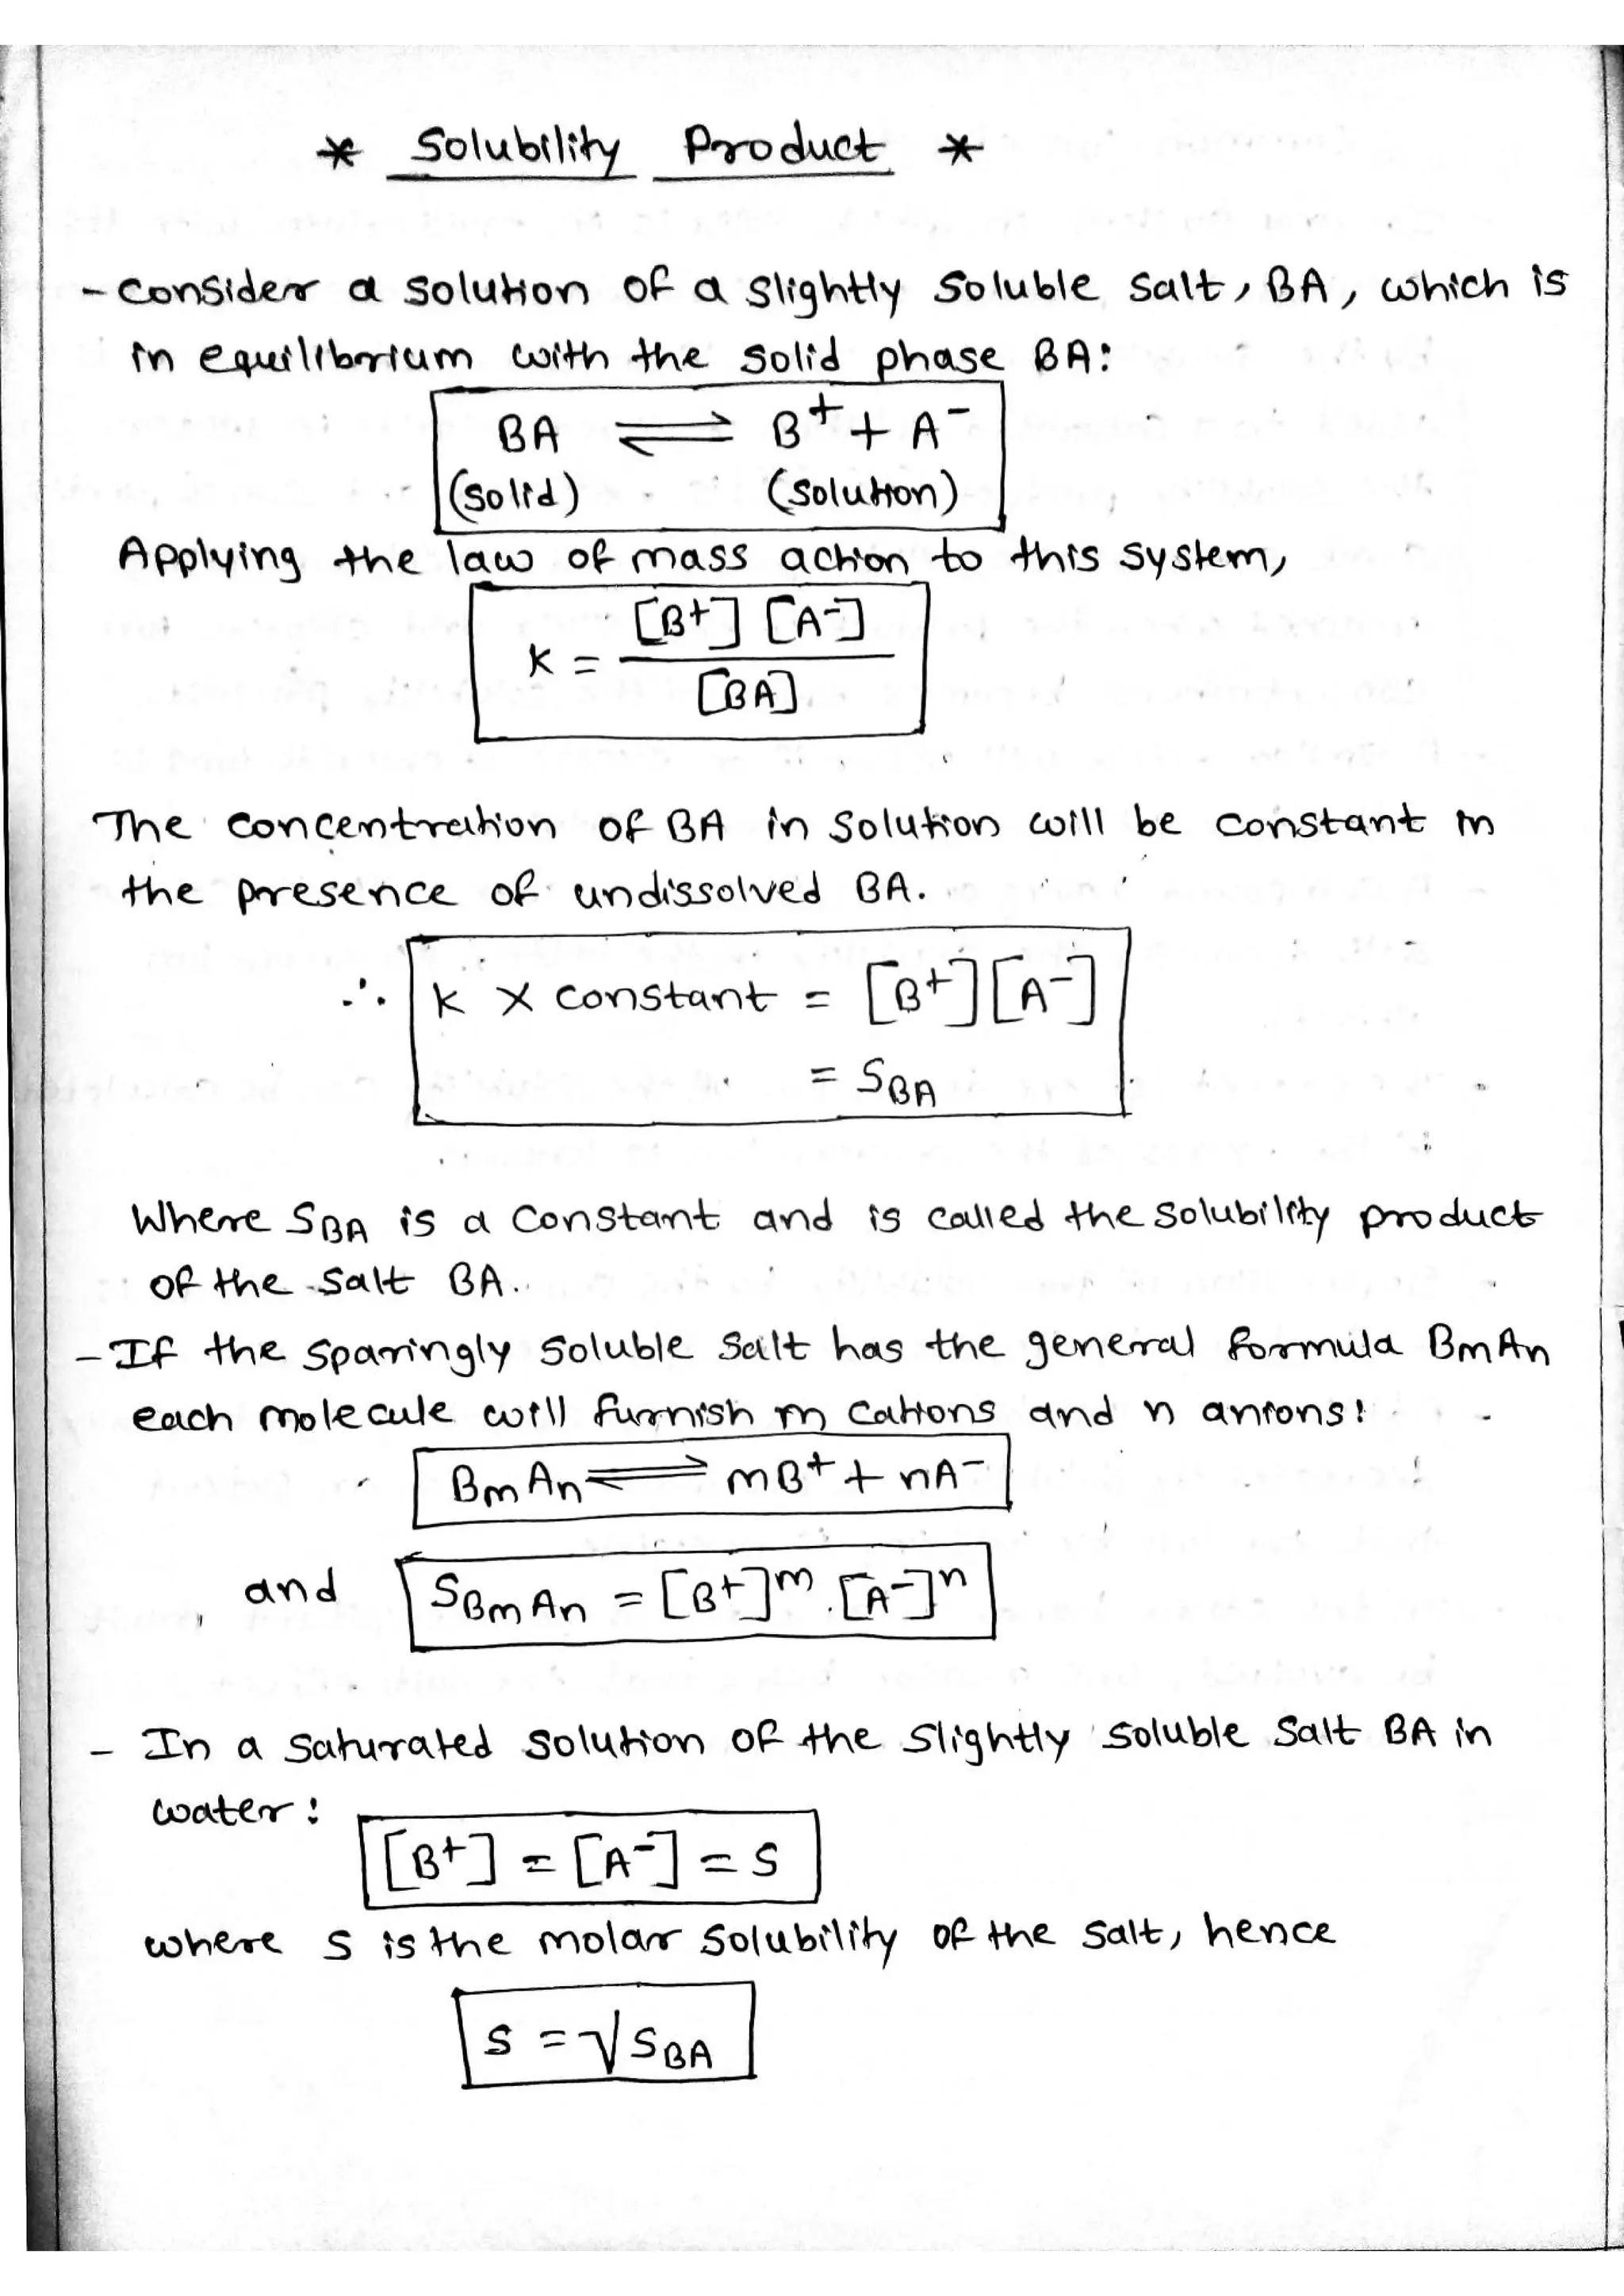 * Solubility Product *
- Consider a solution of a slightly soluble salt, BA, which is
in equilibrium with the solid phase BA:
BA ⇌ B⁺ + A⁻
(solid) (solution)
Applying the law of mass action to this system,
K = [B⁺] [A⁻]
[BA]
The concentration of BA in solution will be constant in
the presence of undissolved BA.
∴ K × constant = [B⁺][A⁻]
= S_BA
Where S_BA is a constant and is called the solubility product
of the salt BA.
- If the sparingly soluble salt has the general formula BmAn
each molecule will furnish m cations and n anions:
BmAn ⇌ mB⁺ + nA⁻
and S_BmAn = [B⁺]ᵐ . [A⁻]ⁿ
- In a saturated solution of the slightly soluble salt BA in
water:
[B⁺] = [A⁻] = S
where S is the molar solubility of the salt, hence
S = √S_BA